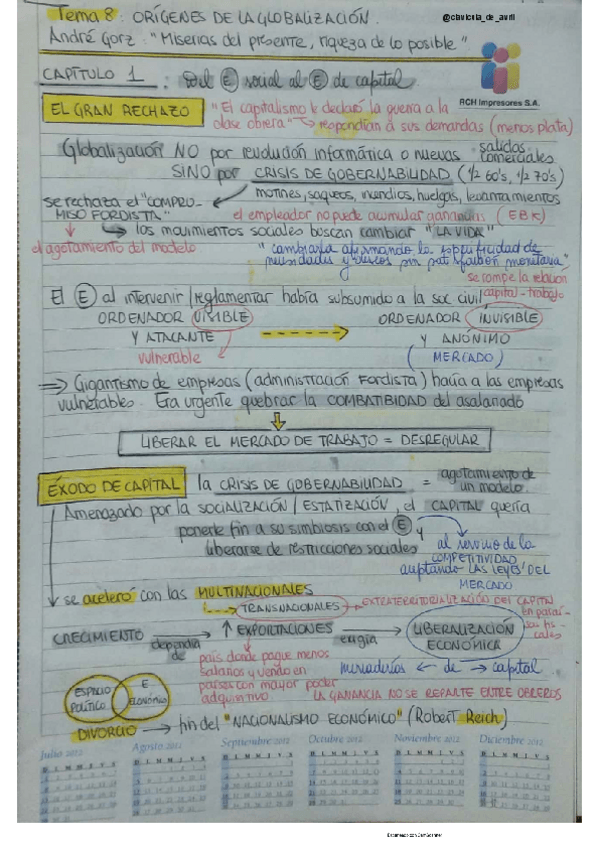 Tema 8: ORÍGENES DE LA GLOBALIZACIÓN.
@clavicula_de_avril
André Gorz: "Miserias del presente, riqueza de lo posible"
CAPÍTULO 1: Del E social al E de capital
RCH Impresores S.A.
EL GRAN RECHAZO "El capitalismo le declaró la guerra a la
clase obrera" → respondían a sus demandas (menos plata)
Globalización NO por revolución informática o nuevas salidas comerciales
SINO por CRISIS DE GOBERNABILIDAD (1/2 60's, 1/2 70's)
motines, saqueos, incendios, huelgas, levantamientos
se rechaza el "COMPROMISO FORDISTA"
el empleador no puede acumular ganancias (EBK)
↳ los movimientos sociales buscan cambiar "LA VIDA"
el agotamiento del modelo
"cambiarla afirmando la especificidad de
necesidades y deseos sin patrón monetaria"
se rompe la relación
capital-trabajo
El E al intervenir/reglamentar había subsumido a la soc civil
ORDENADOR VISIBLE → ORDENADOR INVISIBLE
Y ATACANTE Y ANÓNIMO
vulnerable (MERCADO)
⇒ Gigantismo de empresas (administración Fordista) hacía a las empresas
vulnerables. Era urgente quebrar la COMBATIBIDAD del asalariado
LIBERAR EL MERCADO DE TRABAJO = DESREGULAR
ÉXODO DE CAPITAL la CRISIS DE GOBERNABILIDAD = agotamiento de
un modelo.
Amenazado por la SOCIALIZACIÓN/ESTATIZACIÓN, el CAPITAL quería
ponerle fin a su simbiosis con el E y
liberarse de restricciones sociales
al servicio de la
COMPETITIVIDAD
aceptando LAS LEYES DEL
MERCADO
↳ se aceleró con las MULTINACIONALES
TRANSNACIONALES → EXTRATERRITORIALIZACIÓN DEL CAPITAL
en paraísos fiscales
CRECIMIENTO dependía de → ↑ EXPORTACIONES exigía → LIBERALIZACIÓN
ECONÓMICA
país donde pague menos
salarios y vendo en
países con mayor poder
adquisitivo
mercaderías ← de → capital
LA GANANCIA NO SE REPARTE ENTRE OBREROS
ESPACIO
POLÍTICO
E
ECONÓMICO
DIVORCIO → fin del "NACIONALISMO ECONÓMICO" (Robert Reich)
Julio 2012 Agosto 2012 Septiembre 2012 Octubre 2012 Noviembre 2012 Diciembre 2012